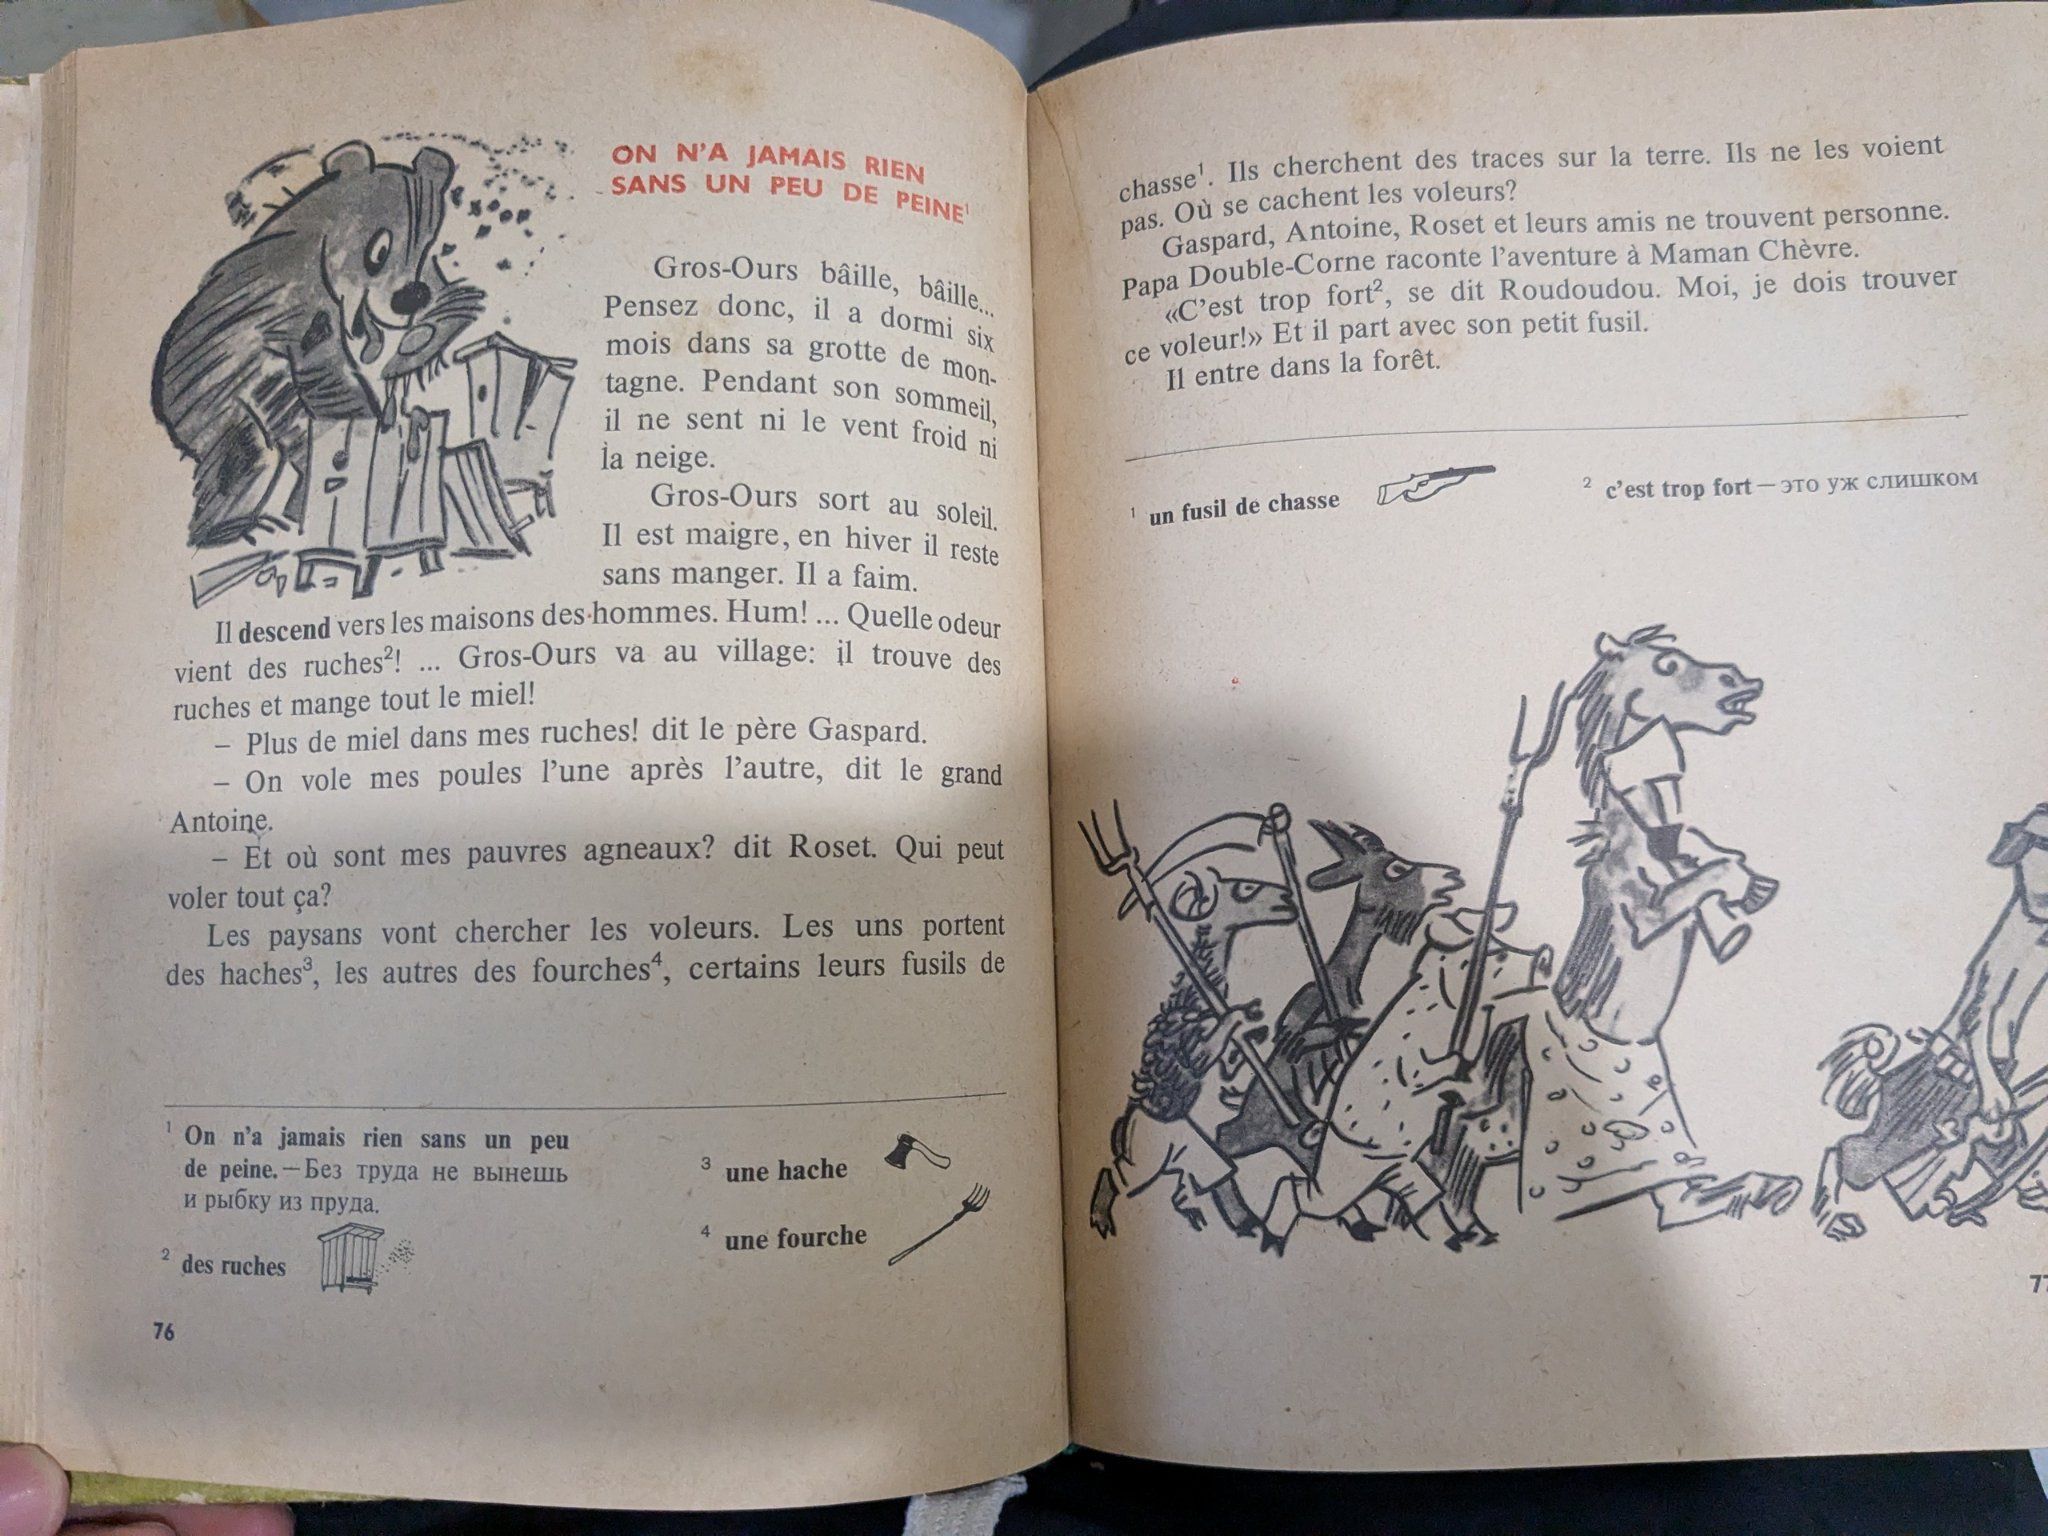 ON N'A JAMAIS RIEN
SANS UN PEU DE PEINE¹
Gros-Ours bâille, bâille...
Pensez donc, il a dormi six
mois dans sa grotte de mon-
tagne. Pendant son sommeil,
il ne sent ni le vent froid ni
la neige.
Gros-Ours sort au soleil.
Il est maigre, en hiver il reste
sans manger. Il a faim.
Il descend vers les maisons des hommes. Hum! ... Quelle odeur
vient des ruches²! ... Gros-Ours va au village: il trouve des
ruches et mange tout le miel!
– Plus de miel dans mes ruches! dit le père Gaspard.
– On vole mes poules l'une après l'autre, dit le grand
Antoine.
– Et où sont mes pauvres agneaux? dit Roset. Qui peut
voler tout ça?
Les paysans vont chercher les voleurs. Les uns portent
des haches³, les autres des fourches⁴, certains leurs fusils de
¹ On n'a jamais rien sans un peu
de peine. — Без труда не вынешь
и рыбку из пруда.
² des ruches
³ une hache
⁴ une fourche
76
chasse¹. Ils cherchent des traces sur la terre. Ils ne les voient
pas. Où se cachent les voleurs?
Gaspard, Antoine, Roset et leurs amis ne trouvent personne.
Papa Double-Corne raconte l'aventure à Maman Chèvre.
«C'est trop fort², se dit Roudoudou. Moi, je dois trouver
ce voleur!» Et il part avec son petit fusil.
Il entre dans la forêt.
¹ un fusil de chasse
² c'est trop fort — это уж слишком
77